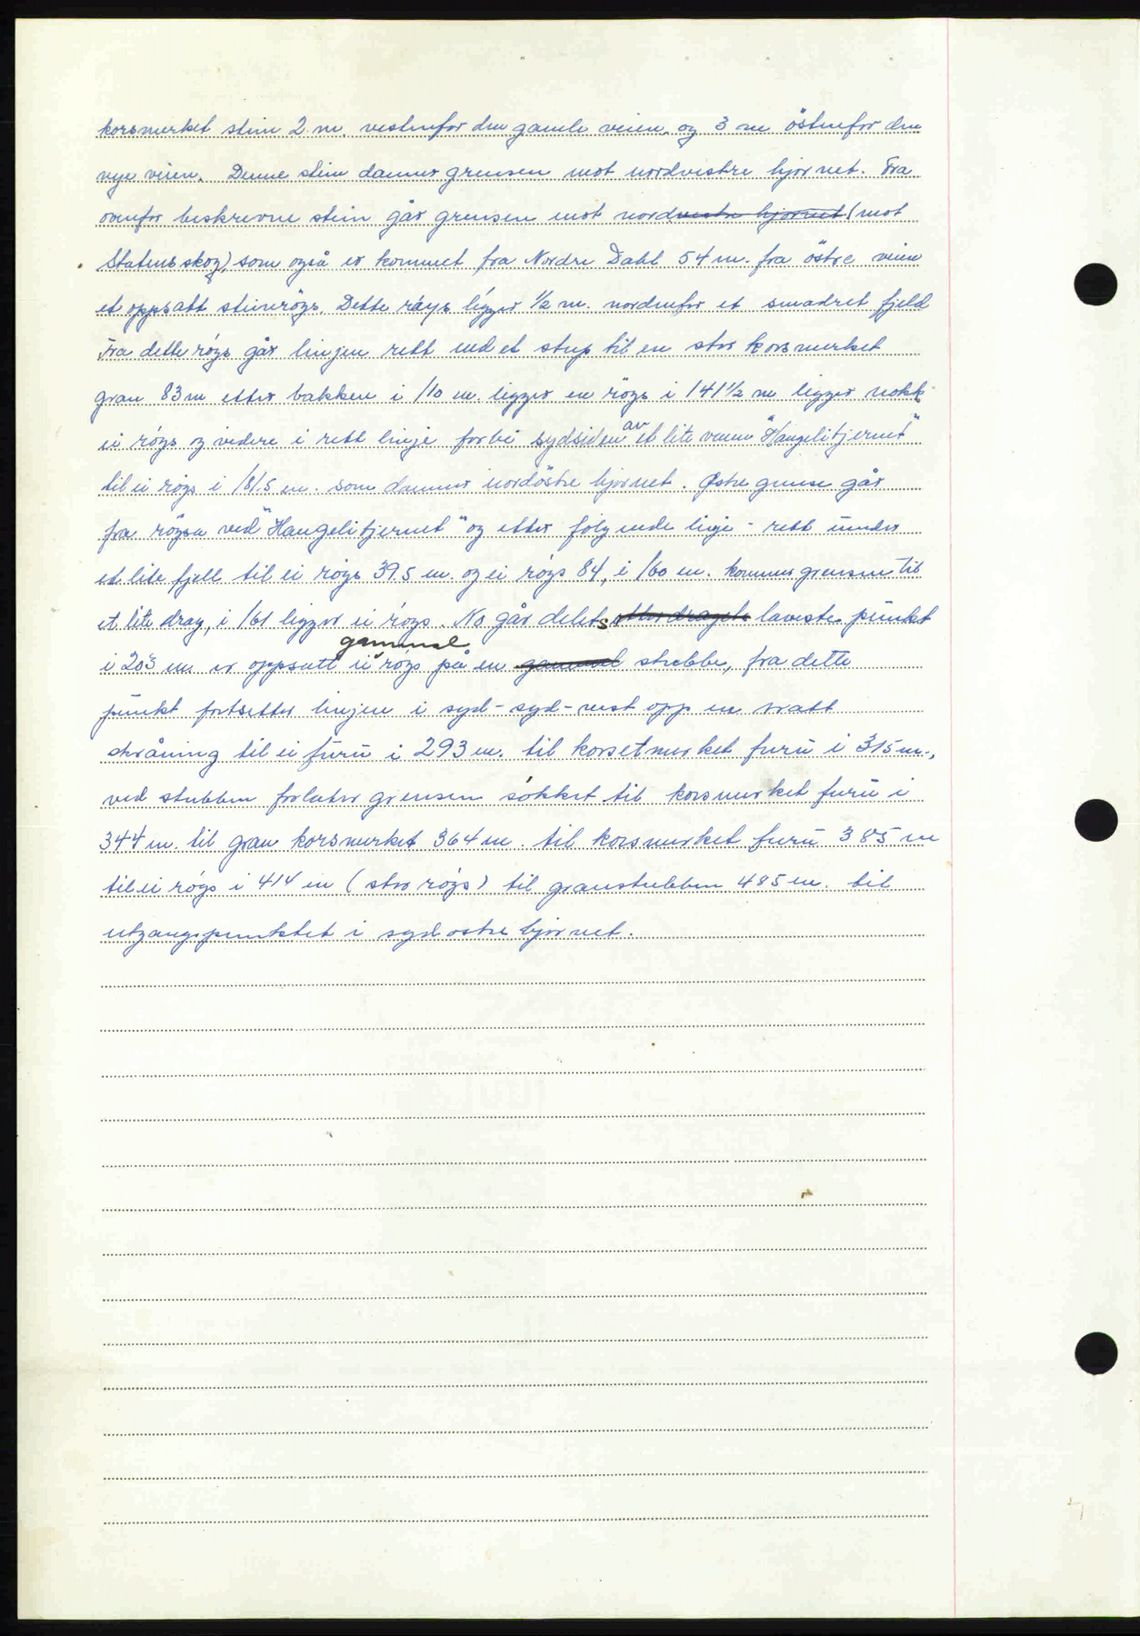 korsmerket stein 2 m. vestenfor den gamle veien og 3 m östenfor den
nye veien. Denne stein danner grensen mot nordvestre hjørnet. Fra
ovenfor beskrevne stein går grensen mot nordvestre hjørnet (mot
Statens skog), som også er kommet fra Nordre Dahl 54 m. fra östre veien
et oppsatt steinrögs. Dette röys ligger 1/2 m. nordenfor et smadret fjell
Fra dette rögs går linjen rett ned et stup til en stor korsmerket
gran 83 m etter bakken i 110 m. ligger en rögs i 141 1/2 m ligger nokk
ei rögs og videre i rett linje forbi sydsiden av et lite vann "Haugelitjernet"
til ei rögs i 1815 m. som danner nordöstre hjørnet. Østre grense går
fra rögsa ved "Haugelitjernet" og etter følgende linje - rett under
et lite fjell til ei rögs 39.5 m. og ei rögs 84, i 160 m. kommer grensen til
et lite drag, i 161 ligger ei rögs. No går delets etter dragets laveste punkt
i 203 m. er oppsatt ei rögs på en gammel gammel stubbe, fra dette
punkt fortsetter linjen i syd-syd-vest opp en bratt
skråning til ei furu i 293 m. til korsetmerket furu i 315 m.,
ved stubben forlater grensen søkket til korsmerket furu i
344 m. til gran korsmerket 364 m. til korsmerket furu 385 m
til ei rógs i 414 m (stor rógs) til granstubben 485 m. til
utgangspunktet i sydostre hjørnet.